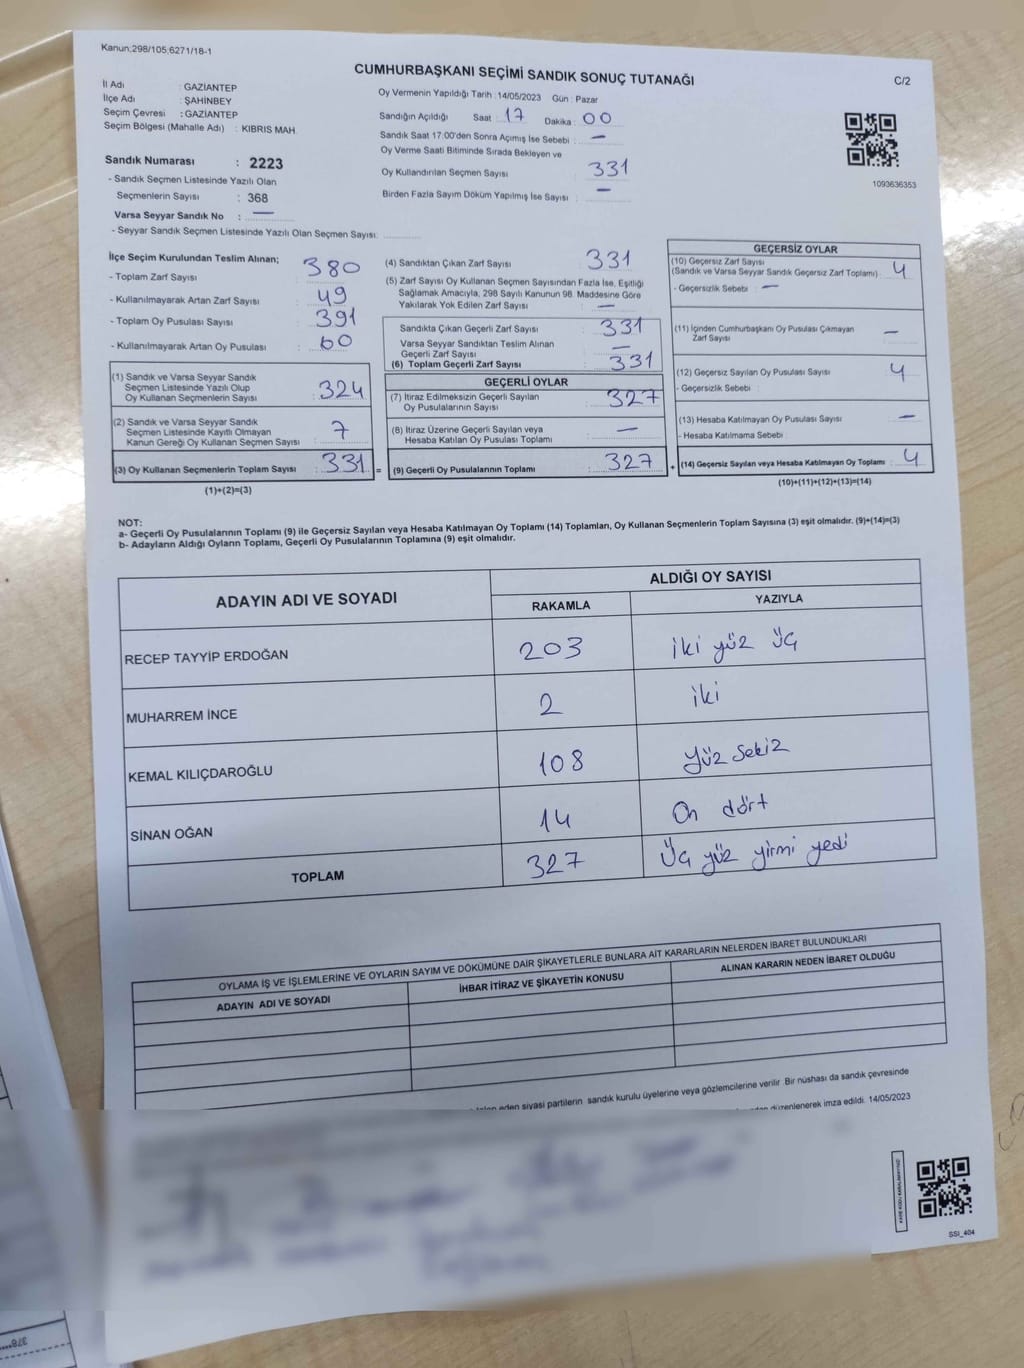 Kanun;298/105;6271/18-1
CUMHURBAŞKANI SEÇİMİ SANDIK SONUÇ TUTANAĞI
C/2
İl Adı : GAZİANTEP
İlçe Adı : ŞAHİNBEY
Seçim Çevresi : GAZİANTEP
Seçim Bölgesi (Mahalle Adı) : KIBRIS MAH.
Sandık Numarası : 2223
- Sandık Seçmen Listesinde Yazılı Olan
Seçmenlerin Sayısı : 368
Varsa Seyyar Sandık No : —
- Seyyar Sandık Seçmen Listesinde Yazılı Olan Seçmen Sayısı:
Oy Vermenin Yapıldığı Tarih : 14/05/2023 Gün : Pazar
Sandığın Açıldığı Saat : 17 Dakika : 00
Sandık Saat 17:00'den Sonra Açımış İse Sebebi : —
Oy Verme Saati Bitiminde Sırada Bekleyen ve
Oy Kullandırılan Seçmen Sayısı : 331
Birden Fazla Sayım Döküm Yapılmış İse Sayısı : —
1093636353
İlçe Seçim Kurulundan Teslim Alınan;
- Toplam Zarf Sayısı : 380
- Kullanılmayarak Artan Zarf Sayısı : 49
- Toplam Oy Pusulası Sayısı : 391
- Kullanılmayarak Artan Oy Pusulası : 60
(1) Sandık ve Varsa Seyyar Sandık
Seçmen Listesinde Yazılı Olup
Oy Kullanan Seçmenlerin Sayısı : 324
(2) Sandık ve Varsa Seyyar Sandık
Seçmen Listesinde Kayıtlı Olmayan
Kanun Gereği Oy Kullanan Seçmen Sayısı : 7
(3) Oy Kullanan Seçmenlerin Toplam Sayısı : 331 =
(1)+(2)=(3)
(4) Sandıktan Çıkan Zarf Sayısı : 331
(5) Zarf Sayısı Oy Kullanan Seçmen Sayısından Fazla İse, Eşitliği
Sağlamak Amacıyla, 298 Sayılı Kanunun 98. Maddesine Göre
Yakılarak Yok Edilen Zarf Sayısı : —
Sandıkta Çıkan Geçerli Zarf Sayısı : 331
Varsa Seyyar Sandıktan Teslim Alınan
Geçerli Zarf Sayısı : —
(6) Toplam Geçerli Zarf Sayısı : 331
GEÇERLİ OYLAR
(7) İtiraz Edilmeksizin Geçerli Sayılan
Oy Pusulalarının Sayısı : 327
(8) İtiraz Üzerine Geçerli Sayılan veya
Hesaba Katılan Oy Pusulası Toplamı : —
(9) Geçerli Oy Pusulalarının Toplamı : 327 +
GEÇERSİZ OYLAR
(10) Geçersiz Zarf Sayısı
(Sandık ve Varsa Seyyar Sandık Geçersiz Zarf Toplamı) : 4
- Geçersizlik Sebebi : —
(11) İçinden Cumhurbaşkanı Oy Pusulası Çıkmayan
Zarf Sayısı : —
(12) Geçersiz Sayılan Oy Pusulası Sayısı : 4
- Geçersizlik Sebebi :
(13) Hesaba Katılmayan Oy Pusulası Sayısı : —
- Hesaba Katılmama Sebebi :
(14) Geçersiz Sayılan veya Hesaba Katılmayan Oy Toplamı : 4
(10)+(11)+(12)+(13)=(14)
NOT:
a- Geçerli Oy Pusulalarının Toplamı (9) ile Geçersiz Sayılan veya Hesaba Katılmayan Oy Toplamı (14) Toplamları, Oy Kullanan Seçmenlerin Toplam Sayısına (3) eşit olmalıdır. (9)+(14)=(3)
b- Adayların Aldığı Oyların Toplamı, Geçerli Oy Pusulalarının Toplamına (9) eşit olmalıdır.
ADAYIN ADI VE SOYADI
ALDIĞI OY SAYISI
RAKAMLA YAZIYLA
RECEP TAYYİP ERDOĞAN 203 iki yüz üç
MUHARREM İNCE 2 iki
KEMAL KILIÇDAROĞLU 108 yüz sekiz
SİNAN OĞAN 14 On dört
TOPLAM 327 Üç yüz yirmi yedi
OYLAMA İŞ VE İŞLEMLERİNE VE OYLARIN SAYIM VE DÖKÜMÜNE DAİR ŞİKAYETLERLE BUNLARA AİT KARARLARIN NELERDEN İBARET BULUNDUKLARI
ADAYIN ADI VE SOYADI İHBAR İTİRAZ VE ŞİKAYETİN KONUSU ALINAN KARARIN NEDEN İBARET OLDUĞU
eden siyasi partilerin sandık kurulu üyelerine veya gözlemcilerine verilir. Bir nüshası da sandık çevresinde
düzenlenerek imza edildi. 14/05/2023
SSI_404